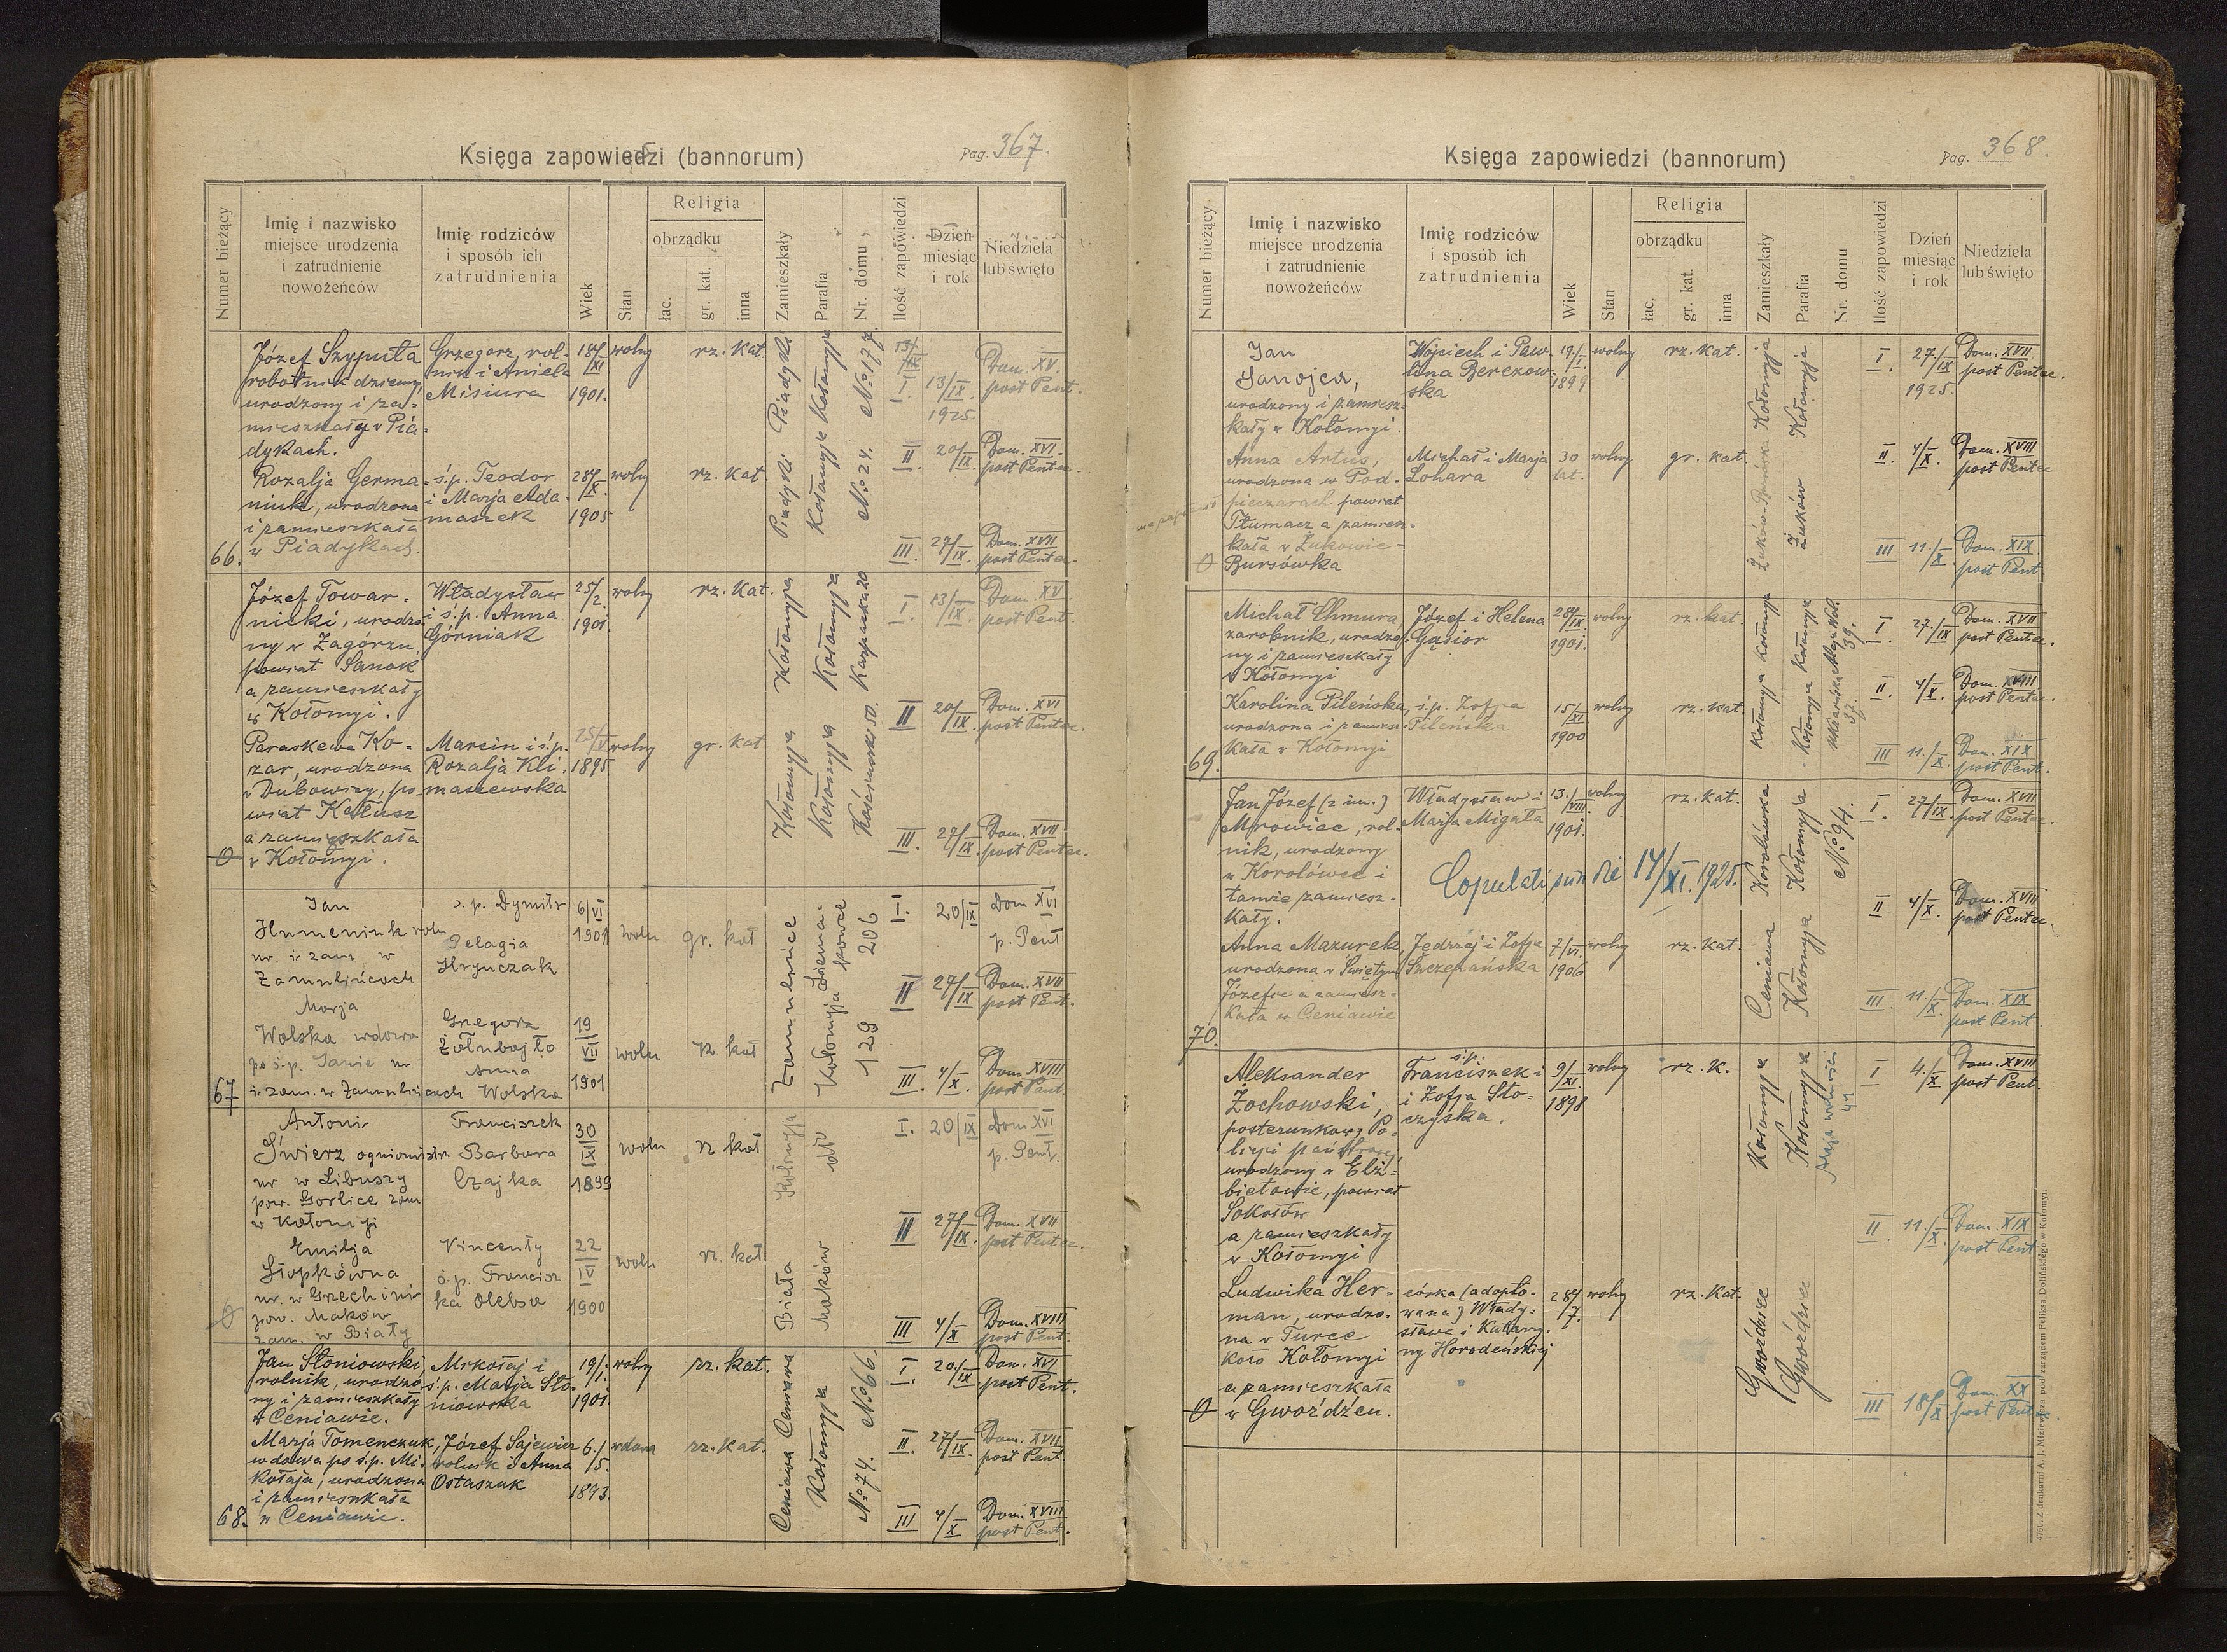 Księga zapowiedzi (bannorum)
Pag. 367.
Numer bieżący
Imię i nazwisko
miejsce urodzenia
i zatrudnienie
nowożeńców
Imię rodziców
i sposób ich
zatrudnienia
Wiek
Stan
Religia
obrządku
łac.
gr. kat.
inna
Zamieszkały
Parafia
Nr. domu
Ilość zapowiedzi
Dzień
miesiąc
i rok
Niedziela
lub święto
66.
Józef Szyputa
robotnik dzienny,
urodzony i za-
mieszkały w Pia-
dykach.
Grzegorz, rol-
nik i Aniela
Misiura
18/XI
1901.
wolny
rz. kat.
Piadyki
Kołomyja
No. 177.
I. 13/IX. 1925.
Dom. XV.
post Pent.
II. 20/IX.
Dom. XVI.
post Pentec.
Rozalja Germa-
niuk, urodzona
i zamieszkała
w Piadykach.
ś.p. Teodor
i Marja Ada-
maszek
28/X.
1905
wolny
rz. kat.
Piadyki
Kołomyja
No. 24.
III. 27/IX.
Dom. XVII
post Pentec.
Józef Towar-
nicki, urodzo-
ny w Zagórzu,
powiat Sanok
a zamieszkały
w Kołomyi.
Władysław
i ś.p. Anna
Górniak
25/2.
1901.
wolny
rz. kat.
Kołomyja
Kołomyja
Karpacka 20
I 13/IX.
Dom. XV
post Pent.
II 20/IX.
Dom. XVI
post Pentec.
Paraskewa Ko-
zar, urodzona
w Dubowicy, po-
wiat Kałusz
a zamieszkała
w Kołomyi.
Marcin i ś.p.
Rozalja Kli-
maszewska
25/V
1895
wolny
gr. kat
Kołomyja
Kołomyja
Kościuszki 50.
III. 27/IX.
Dom. XVII
post Pentec.
67
Jan
Humeniuk roln
ur. i zam. w
Zamulińcach
ś. p. Dymitr
Pelagia
Hryńczak
6/VI
1901
woln
gr. kat
Zamulińce
206
I. 20/IX
Dom XVI
p. Pent
II 27/IX.
Dom. XVII
post Pent.
Marja
Wolska wdowa
po ś.p. Janie ur
i zam. w Zamulińcach
Gregorz
Żołubajło
Anna
Wolska
19
VII
1901
woln
rz kat
Kołomyja
129
III. 4/X.
Dom. XVIII
post Pent
Antoni
Świerz ogniomistr
ur w Libuszy
pow. Gorlice zam
w Kołomyji
Franciszek
Barbara
Czajka
30
XI
1899
woln
rz kat
Kołomyja
dto
I. 20/IX
Dom XVI
p. Pent.
II 27/IX.
Dom. XVII
post Pentec.
Emilja
ur. w Grzechini
pow. Maków
zam. w Biały
Vincenty
ś.p. Francisz
ka Oleksa
22
IV
1900
woln
rz. kat
Biała
Maków
III 4/X
Dom. XVIII
post Pent.
68.
Jan Słoniowski,
rolnik, urodzo-
ny i zamieszkały
w Ceniawie.
Mikołaj i
ś.p. Marja Sło-
niowska
19/1.
1901.
wolny
rz. kat.
Ceniawa
Kołomyja
No. 66.
I 20/IX
Dom. XVI
post Pent.
Marja Tomenczuk,
wdowa po ś.p. Mi-
kołaju, urodzona
i zamieszkała
w Ceniawie.
Józef Sajewicz
rolnik i Anna
Ostaszuk
6./5.
1893.
wdowa
rz. kat.
Ceniawa
No. 74.
II. 27/IX.
Dom. XVII
post Pent.
III 4/X
Dom. XVIII
post Pent.
Księga zapowiedzi (bannorum)
Pag. 368.
Numer bieżący
Imię i nazwisko
miejsce urodzenia
i zatrudnienie
nowożeńców
Imię rodziców
i sposób ich
zatrudnienia
Wiek
Stan
Religia
obrządku
łac.
gr. kat.
inna
Zamieszkały
Parafia
Nr. domu
Ilość zapowiedzi
Dzień
miesiąc
i rok
Niedziela
lub święto
Jan
Janojca,
urodzony i zamiesz-
kały w Kołomyi.
Wojciech i Paw-
lina Berezow-
ska
19./I.
1899
wolny
rz. kat.
Kołomyja
Kołomyja
I. 27./IX 1925.
Dom. XVII.
post Pentec.
Anna Artus,
urodzona w Pod-
pieczarach powiat
Tłumacz a zamiesz-
kała w Żukowie-
Bursówka
Michał i Marja
Lohara
30
lat.
wolny
gr. kat.
Żuków
II. 4/X.
Dom. XVIII
post Pentec
III 11./X
Dom. XIX.
post Pent.
69.
Michał Chmura,
zarobnik, urodzo-
ny i zamieszkały
w Kołomyi
Józef i Helena
Gąsior
28/IX.
1901.
wolny
rz. kat.
Kołomyja
Kołomyja
39.
I 27./IX
Dom. XVII
post Pentec.
Karolina Pileńska,
urodzona i zamiesz-
kała w Kołomyi
ś.p. Zofja
Pileńska
15/XI.
1900
wolny
rz. kat.
Kołomyja
Kołomyja
37.
II 4/X.
Dom. XVIII
post Pentec.
III 11./X.
Dom. XIX
post Pent.
70.
Jan Józef (2 im.)
Mrowiec, rol-
nik, urodzony
w Korolówce i
tamże zamiesz-
kały.
Władysław i
Marja Migała
13./VIII
1901.
wolny
rz. kat.
Korolówka
Kołomyja
No. 94.
I. 27/IX
Dom. XVII
post Pentec.
Copulati sunt die 14/XI. 1925.
II 4/X.
Dom. XVIII
post Pentec.
Anna Mazurek
urodzona w Świętym
Józefie a zamiesz-
kała w Ceniawie
Jędrzej i Zofja
Szczepańska
7/VI.
1906
wolny
rz. kat.
Ceniawa
Kołomyja
III. 11./X.
Dom. XIX
post Pent.
Aleksander
Żochowski,
posterunkowy Po-
licji państwowej,
urodzony w Elż-
bietowie, powiat
Sokołów
a zamieszkały
w Kołomyi
ś.p.
Franciszek i
i Zofja Sto-
czyska.
9/XI.
1898
wolny
rz. k.
Kołomyja
Kołomyja
Aleja wolności
41
I 4./X
Dom. XVIII
post Pent.
II 11./X.
Dom. XIX
post Pent.
Ludwika Her-
man, urodzo-
na w Turce
koło Kołomyi
a zamieszkała
w Gwoźdźcu.
córka (adopto-
wana) Włady-
sława i Katarzy-
ny Horodeńskiej
28/7.
wolny
rz. kat.
Gwoździec
Gwoździec
III 18/X.
Dom. XX
post Pent.
4750. Z drukarni A. J. Miziewicza pod zarządem Feliksa Dolińskiego w Kołomyi.